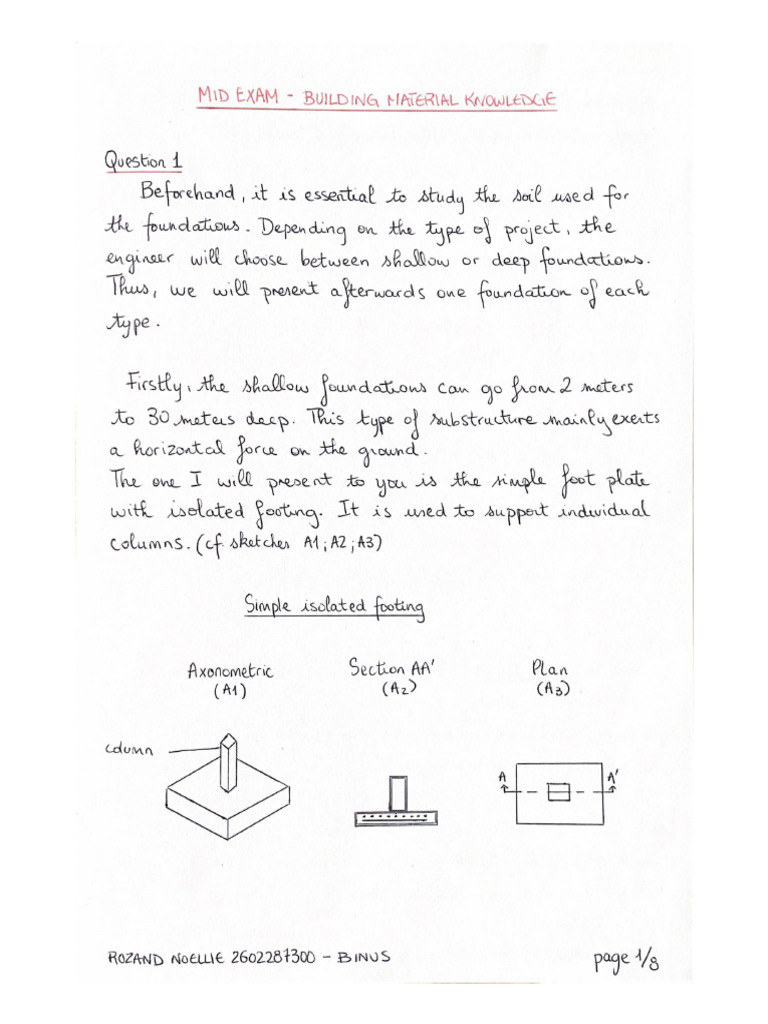 MID EXAM - BUILDING MATERIAL KNOWLEDGE
Question 1
Beforehand, it is essential to study the soil used for
the foundations. Depending on the type of project, the
engineer will choose between shallow or deep foundations.
Thus, we will present afterwards one foundation of each
type.
Firstly, the shallow foundations can go from 2 meters
to 30 meters deep. This type of substructure mainly exerts
a horizontal force on the ground.
The one I will present to you is the simple foot plate
with isolated footing. It is used to support individual
columns. (cf sketches A1; A2; A3)
Simple isolated footing
Axonometric Section AA' Plan
(A1) (A2) (A3)
column
A A'
ROZAND NOELLIE 2602287300 - BINUS page 1/8